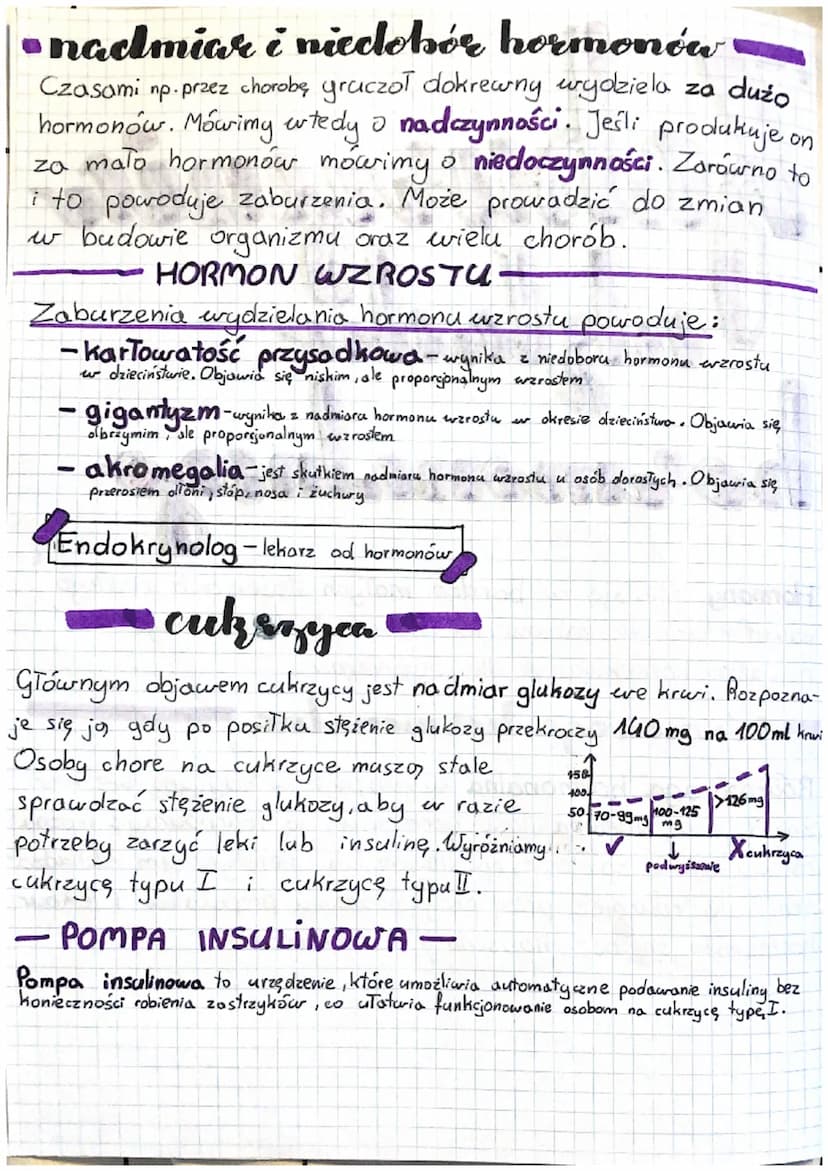 nadmiar i niedobór hormonów
Czasami np. przez chorobę gruczoł dokrewny wydziela za dużo
hormonów. Mówimy wtedy o nadczynności. Jeśli produkuje on
za mało hormonów mówimy o niedoczynności. Zarówno to
i to powoduje zaburzenia. Może prowadzić do zmian
w budowie organizmu oraz wielu chorób.
HORMON WZROSTU
Zaburzenia wydzielania hormonu wzrostu powoduje:
- karłowatość przysadkowa - wynika z niedoboru hormonu wzrostu
w dzieciństwie. Objawia się niskim, ale proporcjonalnym wzrostem
- gigantyzm - wynika z nadmiaru hormonu wzrostu w okresie dzieciństwa. Objawia się
olbrzymim, ale proporcjonalnym wzrostem
- akromegalia - jest skutkiem nadmiaru hormonu wzrostu u osób dorosłych. Objawia się
przerostem dłoni, stóp, nosa i żuchwy
Endokrynolog - lekarz od hormonów
cukrzyca
Głównym objawem cukrzycy jest nadmiar glukozy we krwi. Rozpozna-
je się ją gdy po posiłku stężenie glukozy przekroczy 140 mg na 100ml krwi
Osoby chore na cukrzyce muszą stale
sprawdzać stężenie glukozy, aby w razie
potrzeby zarzyć leki lub insulinę. Wyróżniamy
cukrzycę typu I i cukrzycę typu II.
150
100
50
70-99mg
100-125
mg
>126mg
✓
↓
podwyższenie
X cukrzyca
- POMPA INSULINOWA -
Pompa insulinowa to urządzenie, które umożliwia automatyczne podawanie insuliny bez
konieczności robienia zastrzyków, co ułatwia funkcjonowanie osobom na cukrzycę typę I.